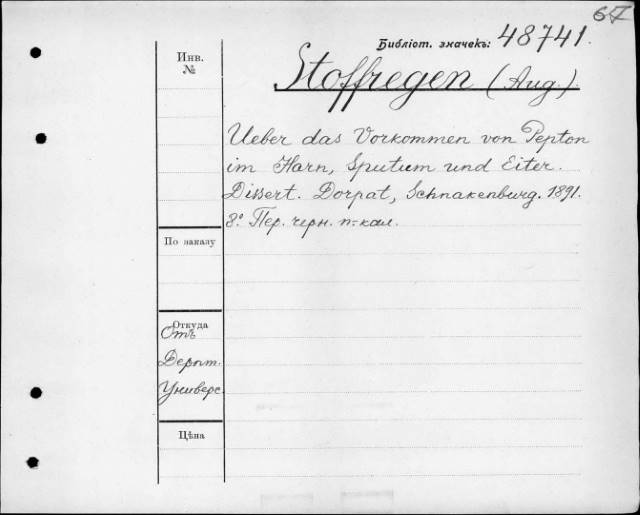 67
Библіот. значекъ: 48741.
Инв.
№
Stoffregen (Aug)
Ueber das Vorkommen von Pepton
im Harn, Sputum und Eiter.
Dissert. Dorpat, Schnakenburg. 1891.
8° Пер. черн. п.-кал.
По заказу
Откуда
Отъ
Дерпт.
Универс.
Цѣна